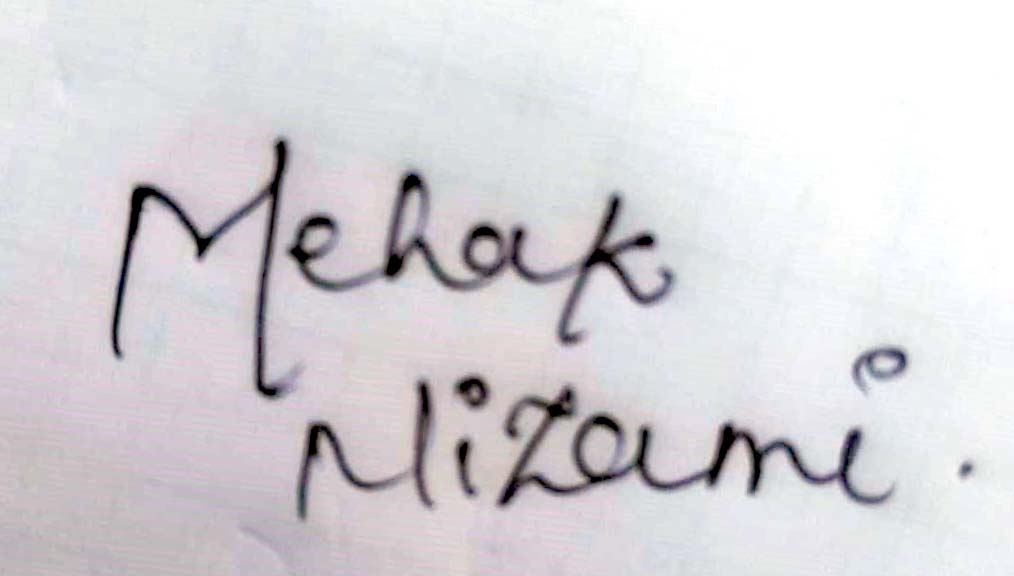 Mehak
Nizami.